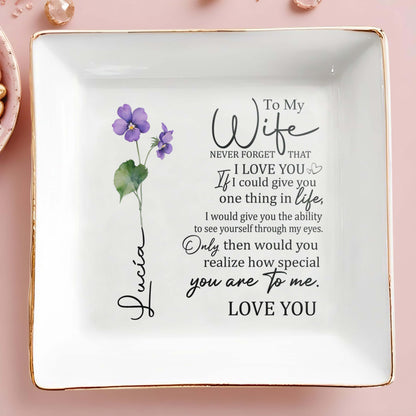 To My
Wife
NEVER FORGET THAT
I LOVE YOU
If I could give you
one thing in life,
I would give you the ability
to see yourself through my eyes.
Only then would you
realize how special
you are to me.
LOVE YOU
Lucía